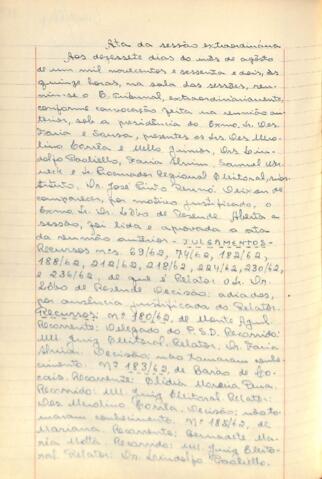 Ata da sessão extraordinária
Aos dezessete dias do mês de agôsto
de um mil novecentos e sessenta e dois, às
quinze horas, na sala das sessões, reu-
niu-se o Tribunal, extraordinariamente,
conforme convocação feita na reunião an-
terior, sob a presidência do Exmo. Sr. Des.
Faria e Sousa, presentes os Srs. Des. Mero-
lino Corrêa e Mello Júnior, Drs. Lin-
dolfo Paoliello, Faria Alvim, Samuel
e o Procurador Regional Eleitoral, subs-
tituto, Dr. José Pinto. Deixou de
comparecer, por motivo justificado, o
Exmo. Sr. Dr. Lôbo de Resende. Aberta a
sessão, foi lida e aprovada a ata
da reunião anterior. - JULGAMENTOS -
Recursos nºs. 69/62, 74/62, 182/62,
188/62, 212/62, 218/62, 224/62, 230/62,
e 236/62, de que é Relator o Sr. Dr.
Lôbo de Resende. Decisão: adiados,
por ausência justificada do Relator.
Recursos: Nº 180/62, de Monte Azul.
Recorrente: Delegado do P.S.D. Recorrido:
MM. Juiz Eleitoral. Relator: Dr. Faria
Alvim. Decisão: não tomaram conhe-
cimento. Nº 183/62, de Barão de Co-
cais. Recorrente: Elídia Moreira
Recorrido: MM. Juiz Eleitoral. Relator:
Des. Merolino Corrêa. Decisão: não to-
maram conhecimento. Nº 185/62, de
Mariana. Recorrente: Bernadete Ma-
ria Motta. Recorrido: MM. Juiz Eleito-
ral. Relator: Dr. Lindolfo Paoliello.